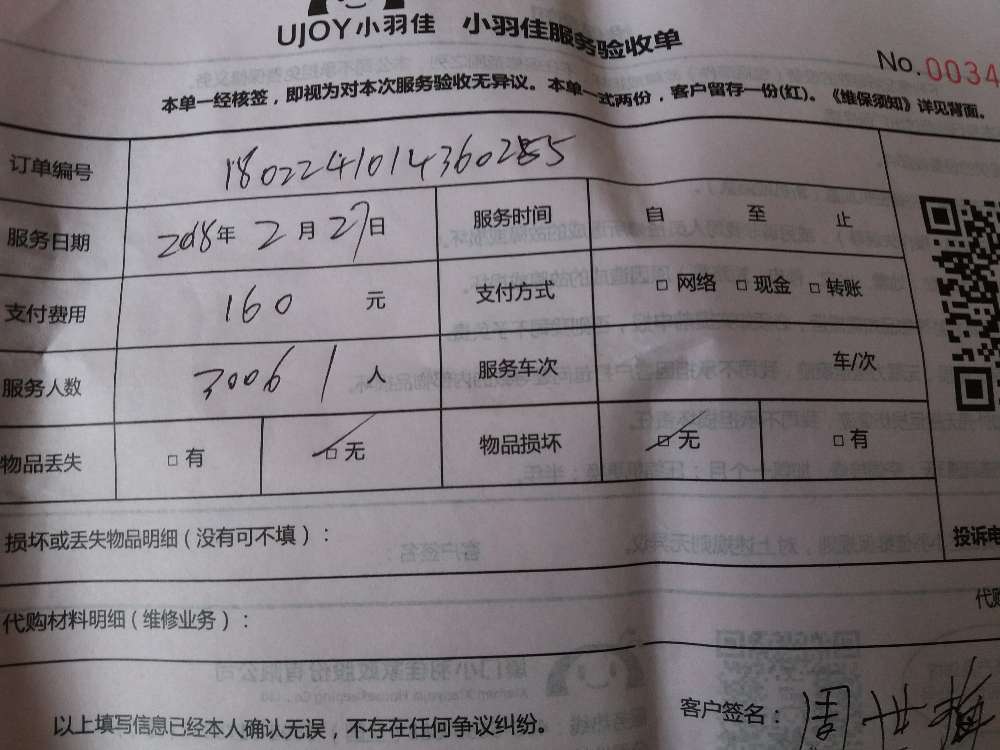 UJOY小羽佳 小羽佳服务验收单
No.0034
本单一经核签，即视为对本次服务验收无异议。本单一式两份，客户留存一份(红)。《维保须知》详见背面。
订单编号 180224101436028
服务日期 2018年2月27日 服务时间 自 至 止
支付费用 160 元 支付方式 □网络 □现金 □转账
服务人数 30061 人 服务车次 车/次
物品丢失 □有 □无 物品损坏 □无 □有
损坏或丢失物品明细(没有可不填)：
投诉电
代购材料明细(维修业务)：
代购
以上填写信息已经本人确认无误，不存在任何争议纠纷。
客户签名：周